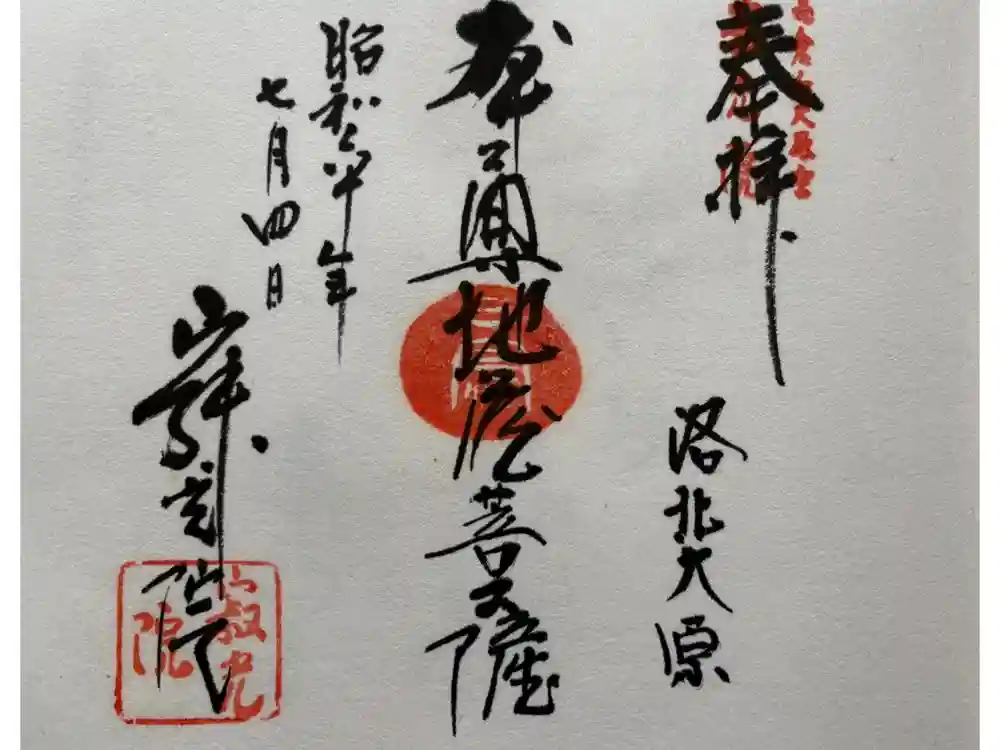 奉拝
洛北大原
本尊地蔵菩薩
昭和六十年
七月四日
寂光院
寂光院